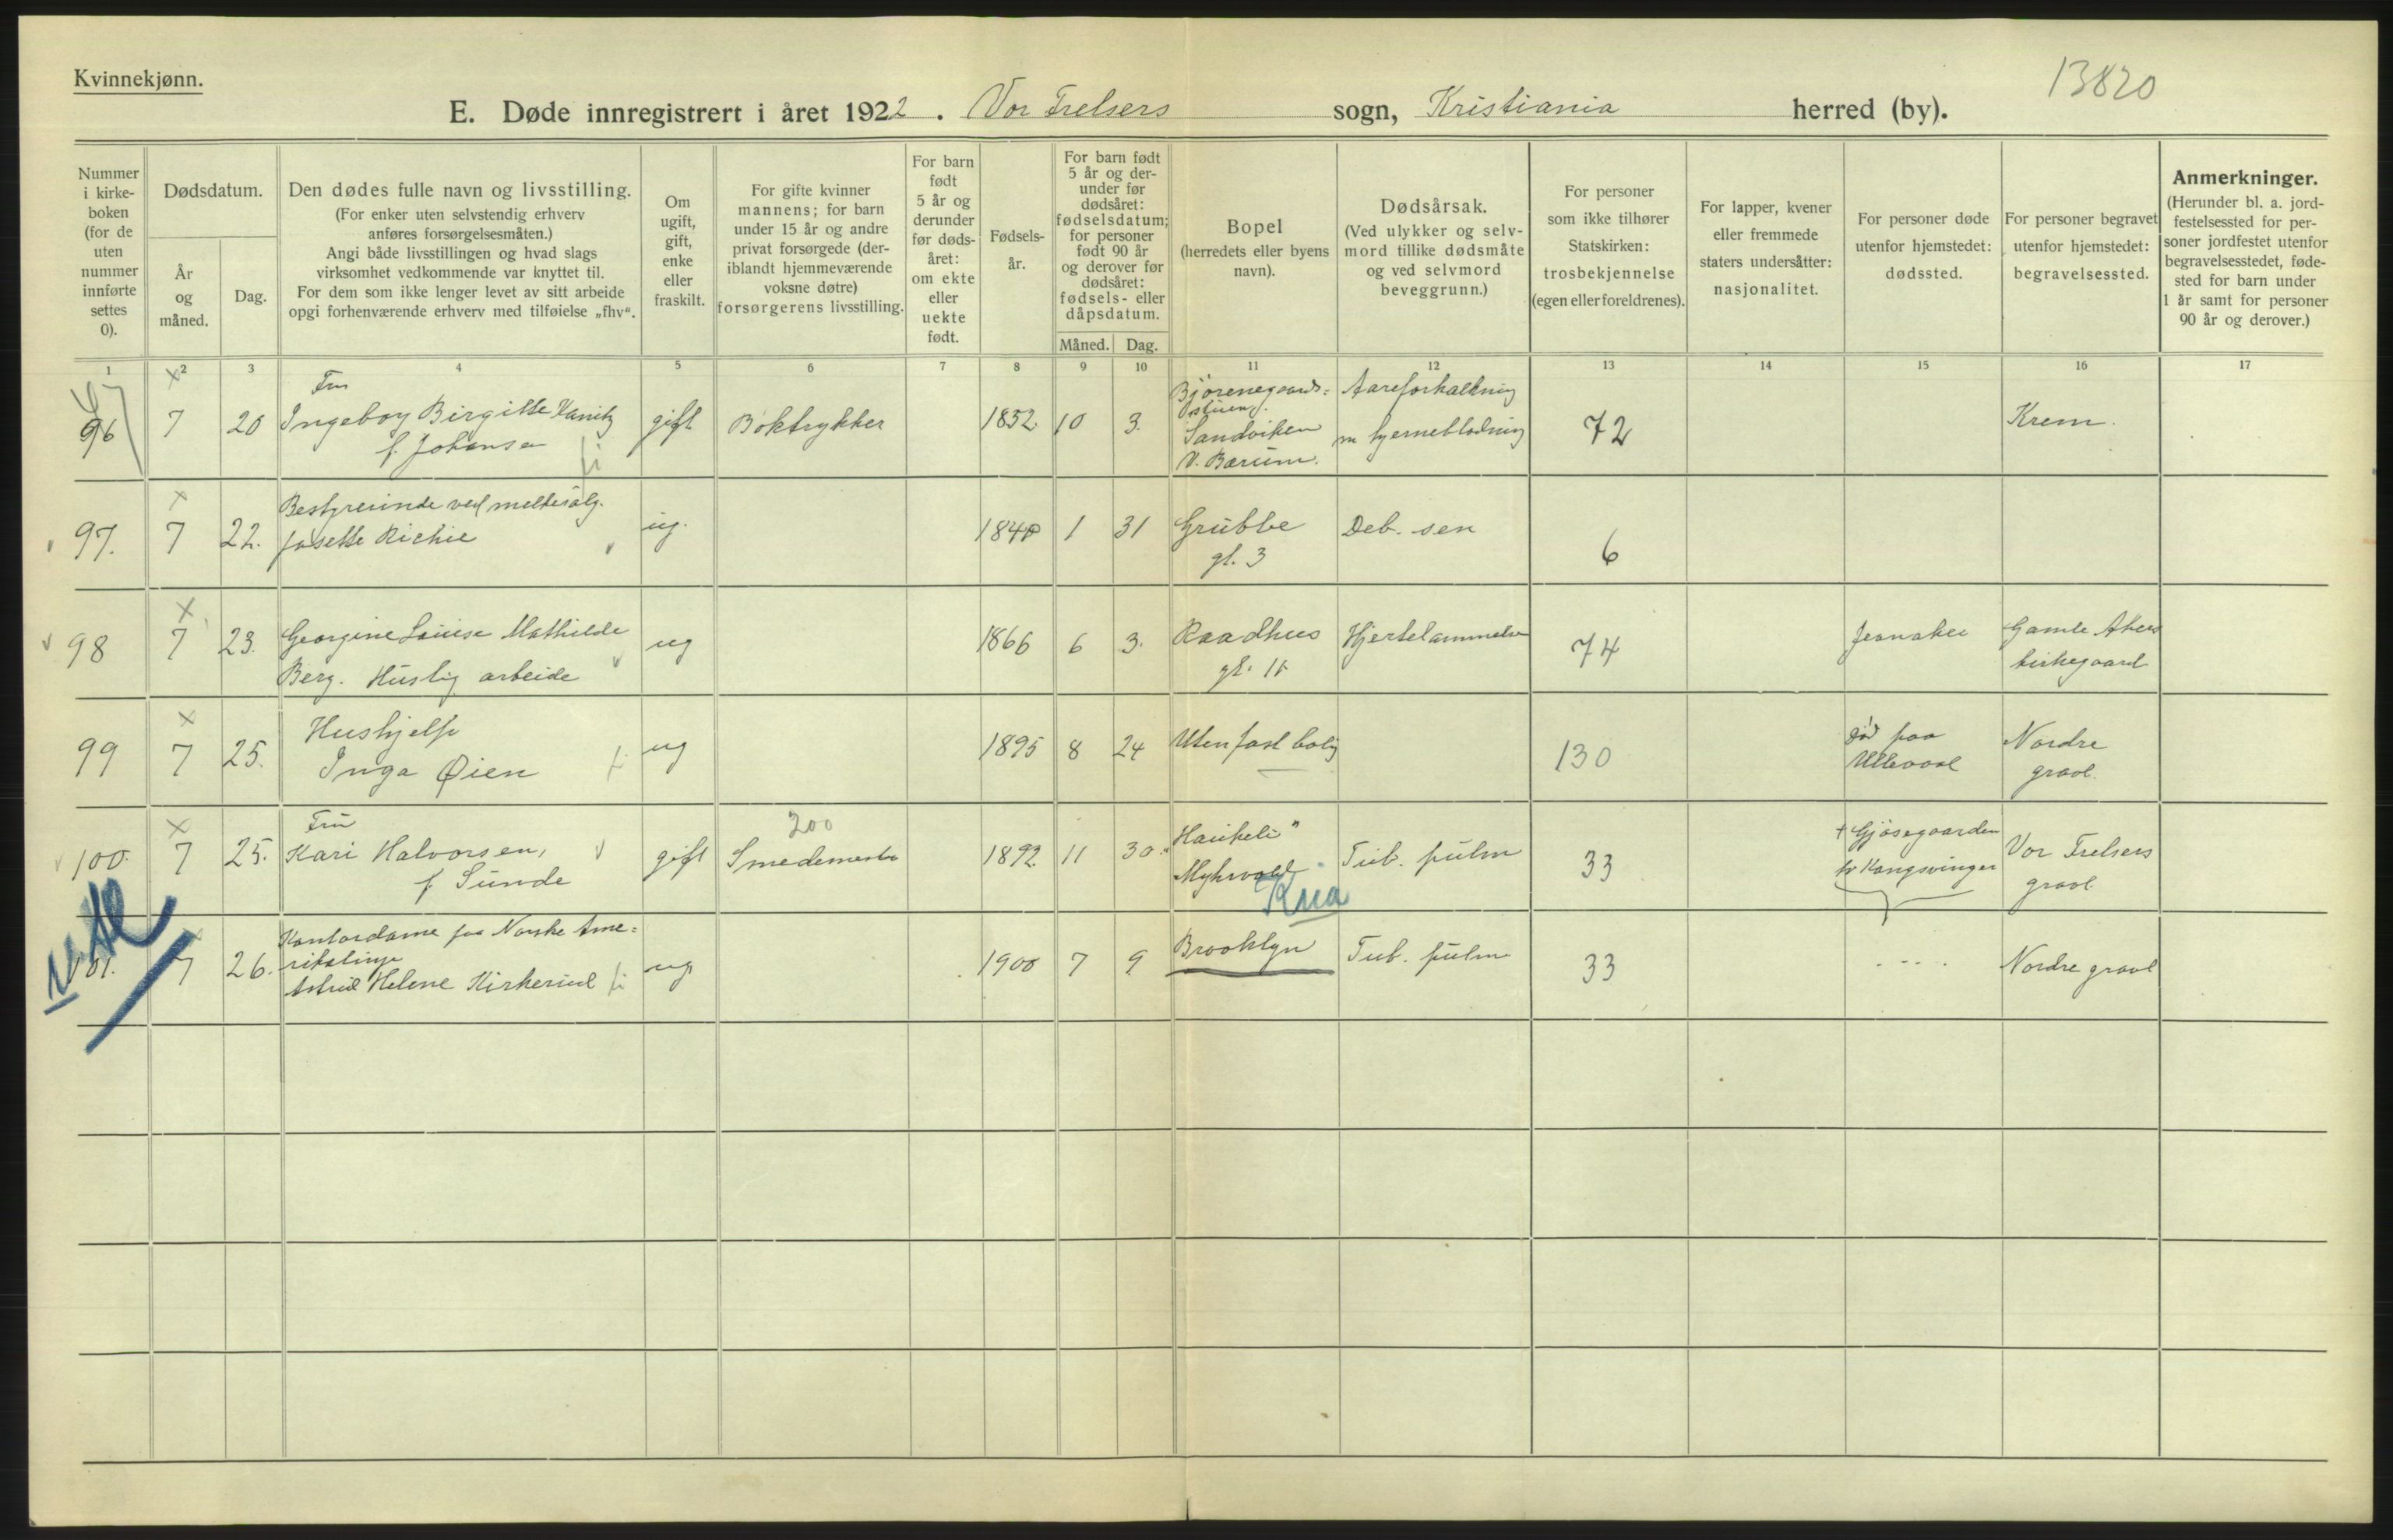 Kvinnekjønn.
13820
E. Døde innregistrert i året 1922. Vor Frelsers sogn, Kristiania herred (by).
Nummer
i kirke-
boken
(for de
uten
nummer
innførte
settes
0).
Dødsdatum.
År
og
måned.
Dag.
Den dødes fulle navn og livsstilling.
(For enker uten selvstendig erhverv
anføres forsørgelsesmåten.)
Angi både livsstillingen og hvad slags
virksomhet vedkommende var knyttet til.
For dem som ikke lenger levet av sitt arbeide
opgi forhenværende erhverv med tilføielse „fhv“.
Om
ugift,
gift,
enke
eller
fraskilt.
For gifte kvinner
mannens; for barn
under 15 år og andre
privat forsørgede (der-
iblandt hjemmeværende
voksne døtre)
forsørgerens livsstilling.
For barn
født
5 år og
derunder
før døds-
året:
om ekte
eller
uekte
født.
Fødsels-
år.
For barn født
5 år og der-
under før
dødsåret:
fødselsdatum;
for personer
født 90 år
og derover før
dødsåret:
fødsels- eller
dåpsdatum.
Måned. Dag.
Bopel
(herredets eller byens
navn).
Dødsårsak.
(Ved ulykker og selv-
mord tillike dødsmåte
og ved selvmord
beveggrunn.)
For personer
som ikke tilhører
Statskirken:
trosbekjennelse
(egen eller foreldrenes).
For lapper, kvener
eller fremmede
staters undersåtter:
nasjonalitet.
For personer døde
utenfor hjemstedet:
dødssted.
For personer begravet
utenfor hjemstedet:
begravelsessted.
Anmerkninger.
(Herunder bl. a. jord-
festelsessted for per-
soner jordfestet utenfor
begravelsesstedet, føde-
sted for barn under
1 år samt for personer
90 år og derover.)
1 2 3 4 5 6 7 8 9 10 11 12 13 14 15 16 17
Fru
96 7 20 Ingeborg Birgitte gift Boktrykker 1852 10 3. Sandviken m hjerneblødning 72 Krem.
f. Johansen
V. Bærum.
Bestyrerinde ved melkesalg.
97. 7 22. Josette Richie ug. 1840 1 31 Grubbe Deb. sen 6
gt. 3
98 7 23. Georgine Louise Mathilde ug 1866 6 3. Raadhus Hjertelammelse 74 Gamle Akers
Berg. Huslig arbeide gt. 11 kirkegaard
Hushjelp
99 7 25. Inga Øien ug 1895 8 24 Uten fast bolig 130 død paa Ullevaal Nordre gravl.
Fru 200
100. 7 25. Kari Halvorsen, gift Smedemester 1892 11 30. "Haukeli" Tub. pulm 33 + Gjøsegaarden Vor Frelsers
f. Sunde Myhrvold Kongsvinger gravl.
Kna
Kontordame paa Norske Ame=
101. 7 26. rikalinje ug 1900 7 9 Brooklyn Tub. pulm 33 - - - - Nordre gravl
Astrid Helene Kirkerud